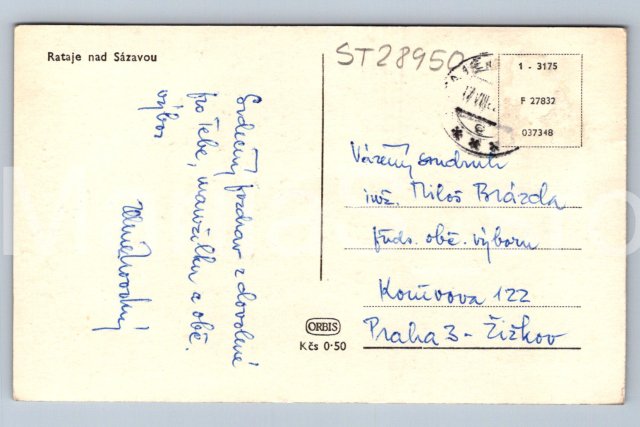 Rataje nad Sázavou
ST28950
1 - 3175
F 27832
037348
Srdečný pozdrav z dovolené
pro Tebe, manželku a obě.
výbor
Vážený soudruh
inž. Miloš Brázda
předs. obč. výboru
122
Praha 3 - Žižkov
ORBIS
Kčs 0·50